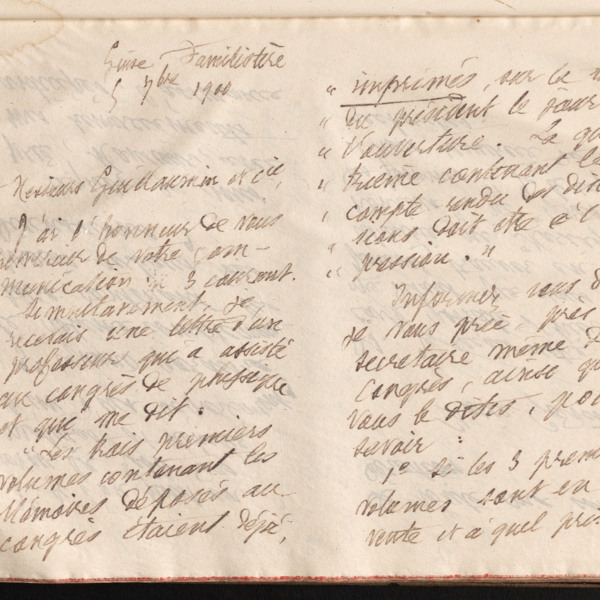 Guise Familistère
5 7bre 1900
Messieurs Guillaumin et Cie,
J'ai l'honneur de vous
remercier de votre com-
munication du 3 courant.
Simultanément je
recevais une lettre d'un
professeur qui a assisté
au congrès de physique
et qui me dit :
"Les trois premiers
volumes contenant les
Mémoires déposés au
congrès étaient déjà,
" imprimés, sur la
" du président le jour
" l'ouverture. La qua
" trième contenant le
" compte rendu des dis
" sions doit être à l'
" pression."
Informer vous
je vous prie, près
secrétaire même d
Congrès, ainsi qu
vous le dites, pou
savoir :
1° Si les 3 premi
volumes sont en
vente et à quel prix